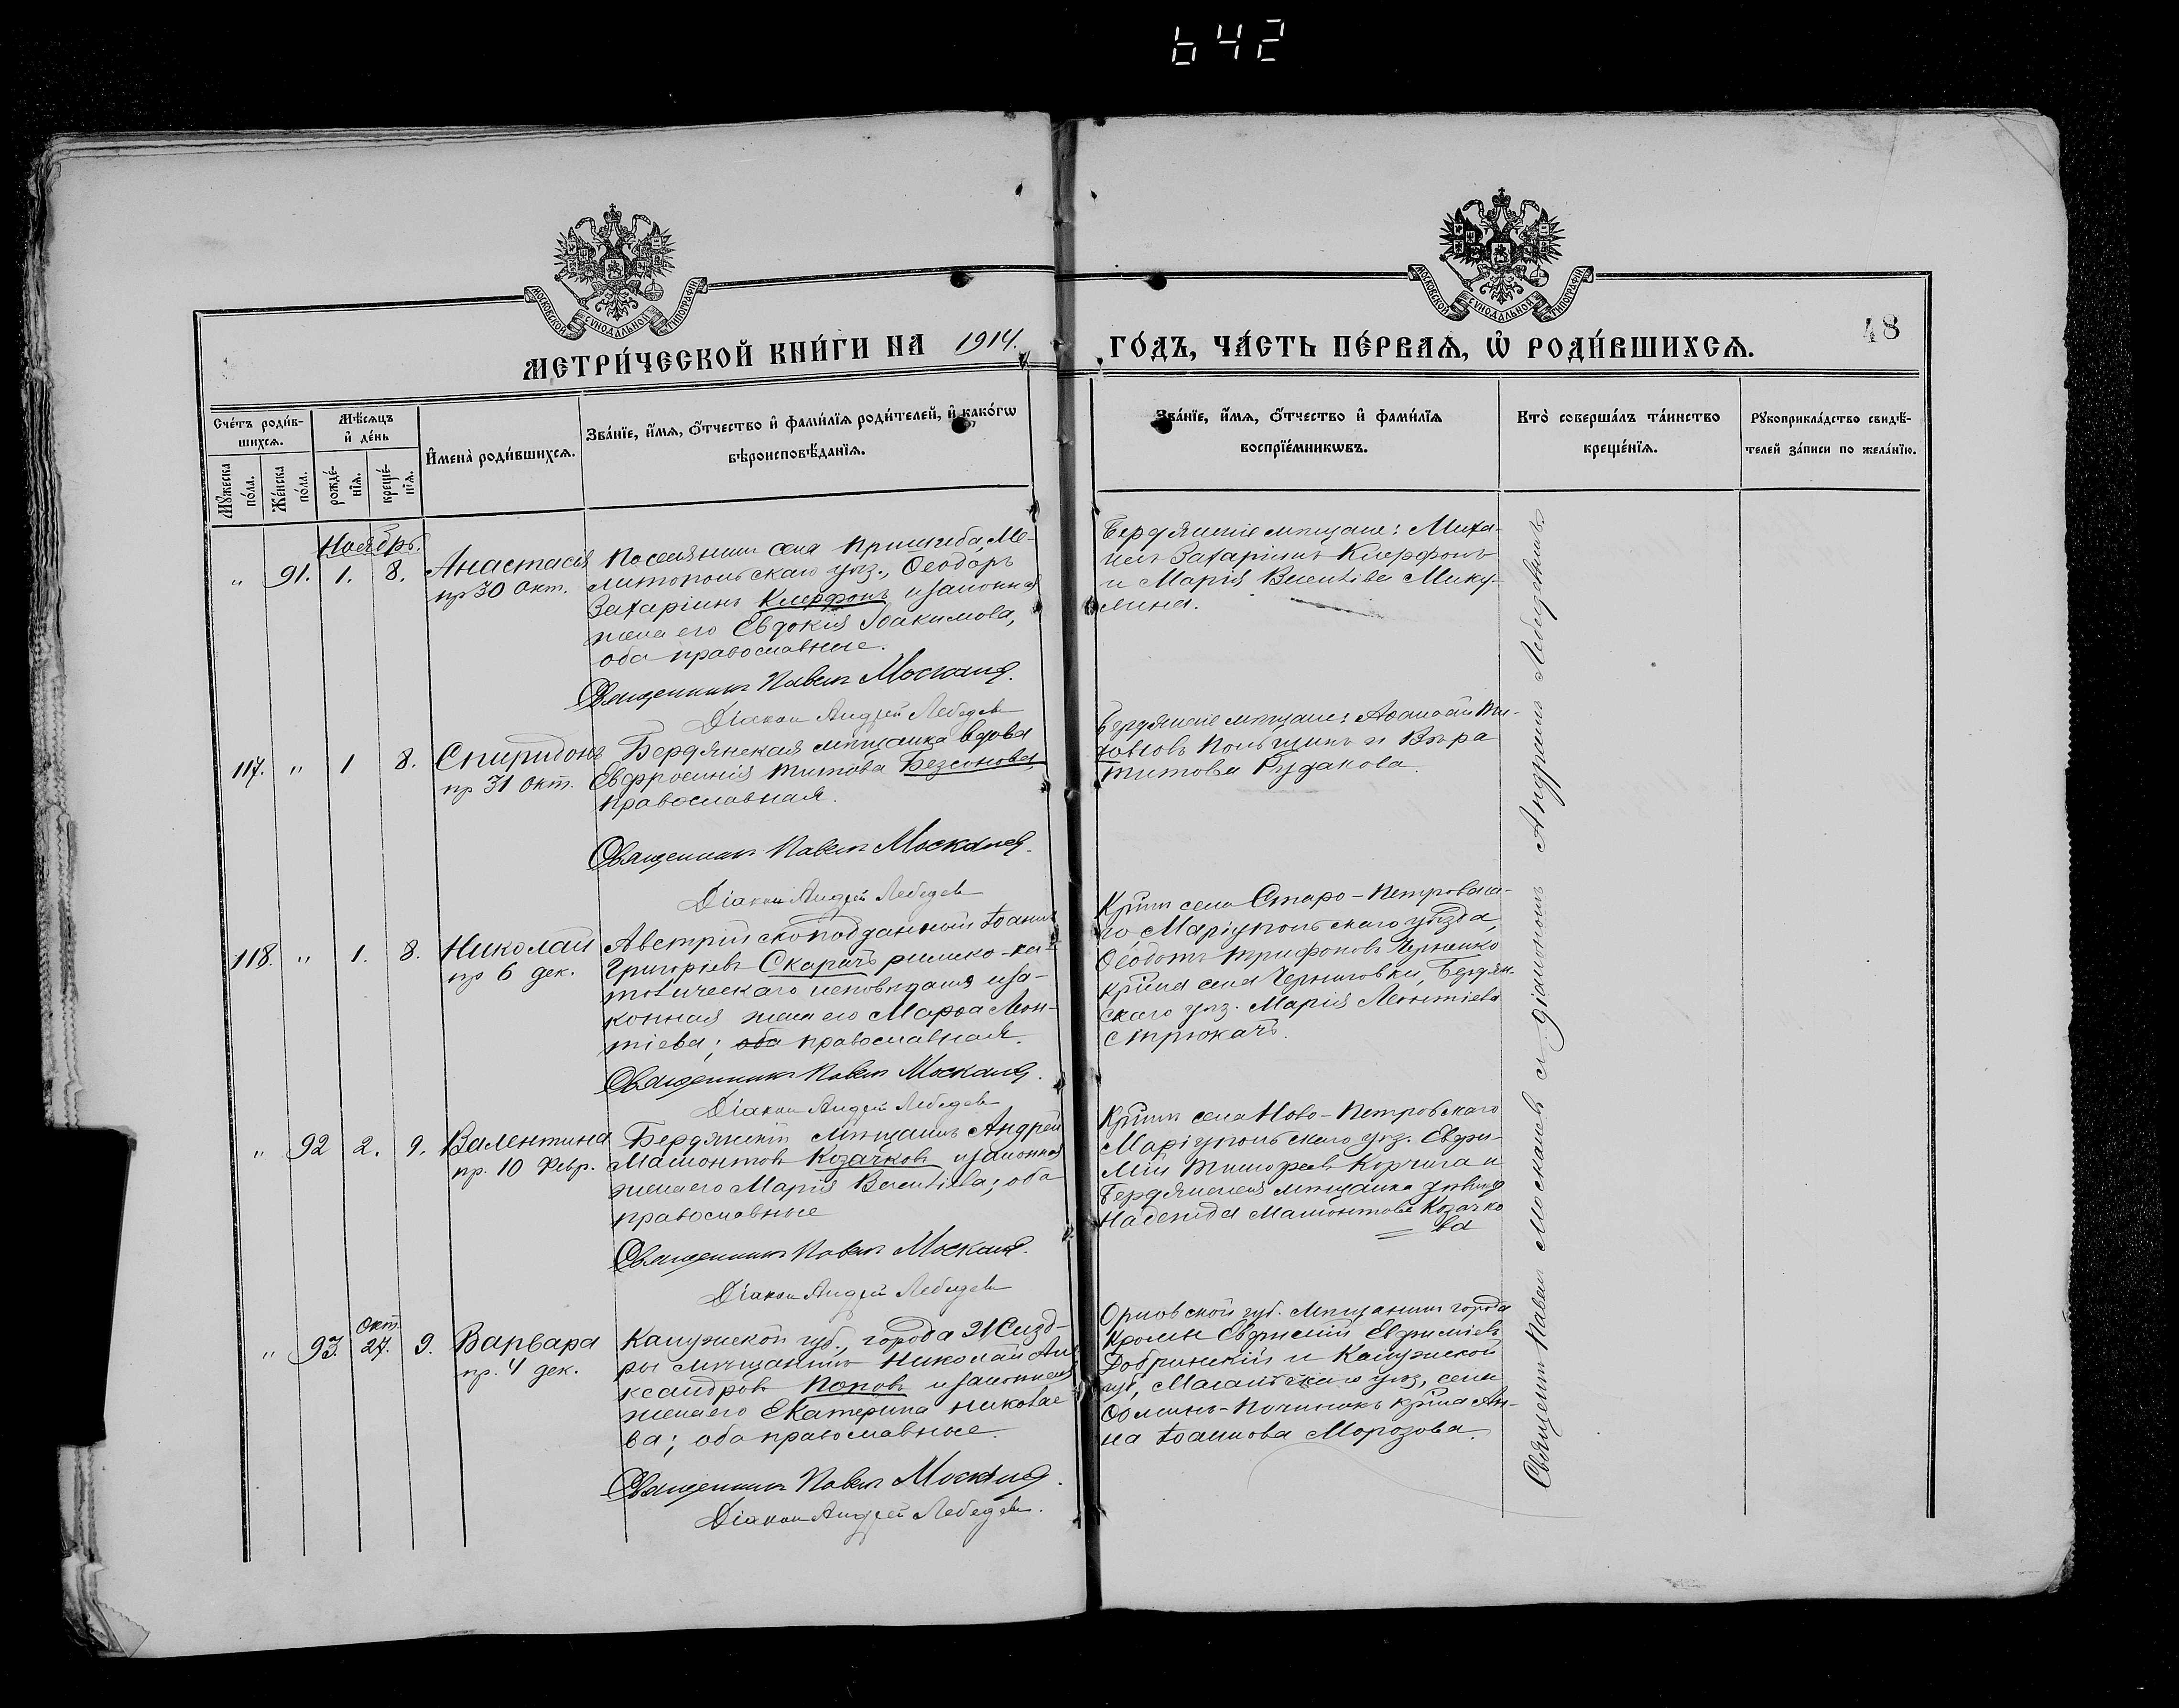 642
МОСКОВСКОЙ СѴНОДАЛЬНОЙ ТИПОГРАФІИ
МОСКОВСКОЙ СѴНОДАЛЬНОЙ ТИПОГРАФІИ
МЕТРИ́ЧЕСКОЙ КНИ́ГИ НА 1914.
ГО́ДЪ, ЧА́СТЬ ПЕ́РВАѦ, Ѡ҆ РОДИ́ВШИХСѦ.
48
Сче́тъ роди́в-
шихсѧ.
Мꙋ́жеска
по́ла.
Же́нска
по́ла.
Мѣ́сѧцъ
и҆ де́нь
рожде́-
нїѧ.
креще́-
нїѧ.
И҆мена̀ роди́вшихсѧ.
Зва́нїе, и҆́мѧ, ѻ҆́тчество и҆ фами́лїѧ роди́телей, и҆ како́гѡ
вѣроисповѣ́данїѧ.
Зва́нїе, и҆́мѧ, ѻ҆́тчество и҆ фами́лїѧ
воспрїе́мникѡвъ.
Кто̀ соверша́лъ та́инство
креще́нїѧ.
Рꙋкоприкла́дство свидѣ́-
телей за́писи по жела́нїю.
Ноябрь.
„ 91. 1. 8.
Анастасія
пр 30 Окт.
Поселянин села Пришиба, Ме-
литопольскаго уѣз., Ѳеодоръ
Захаріинъ Клерфонъ и законная
жена его Евдокія Іоакимова,
оба православные.
Священникъ Павелъ Москалевъ.
Діаконъ Андрей Лебедевъ
Бердянскіе мѣщане: Миха-
илъ Захаріинъ Клерфонъ
и Марія Викентіева Мику-
лина.
117. „ 1 8.
Спиридонъ
пр 31 Окт.
Бердянская мѣщанка вдова
Евфросинія Титова Безсонова,
православная.
Священникъ Павелъ Москалевъ.
Діаконъ Андрей Лебедевъ
Бердянскіе мѣщане: Аѳанасій
и Вѣра
Титова Рудакова.
118. „ 1. 8.
Николай
пр 6 дек.
Австрійскоподданный Іоаннъ
Григоріевъ Скаричъ римско-ка-
толическаго исповѣданія и за-
конная жена его Марѳа Леон-
тіева; оба православная.
Священникъ Павелъ Москалевъ.
Діаконъ Андрей Лебедевъ
Кр҃нин села Старо-Петровска-
го, Маріупольскаго уѣзда,
Ѳеодотъ Трифоновъ Черненко
кр҃нка села Черниговки, Бердян-
скаго уѣз. Марія Леонтіева
Стрюкачъ.
„ 92 2. 9.
Валентина
пр. 10 Февр.
Бердянскій мѣщанинъ Андрей
Мамонтовъ Козачковъ и законная
жена его Марія Викентіева; оба
православные
Священникъ Павелъ Москалевъ.
Діаконъ Андрей Лебедевъ
Кр҃нин села Ново-Петровскаго
Маріупольскаго уѣз. Евфи-
мій Тимофеевъ Корчига и
Бердянская мѣщанка дѣвица
Надежда Мамонтова Козачко
ва
„ 93. Окт. 27. 9.
Варвара
пр. 4 дек.
Калужской губ., города Жизд-
ры мѣщанинъ Николай Але-
ксандровъ Поповъ и законная
жена его Екатерина Николае
ва; оба православные.
Священникъ Павелъ Москалевъ.
Діаконъ Андрей Лебедевъ.
Орловской губ. мѣщанинъ города
Кромы Евфимій Евфиміевъ
Добринскій и Калужской
губ, уѣз, села
Починокъ кр҃нка Ан-
на Іоаннова Морозова.
Священникъ Павелъ Москалевъ съ діакономъ Андреемъ Лебедевымъ